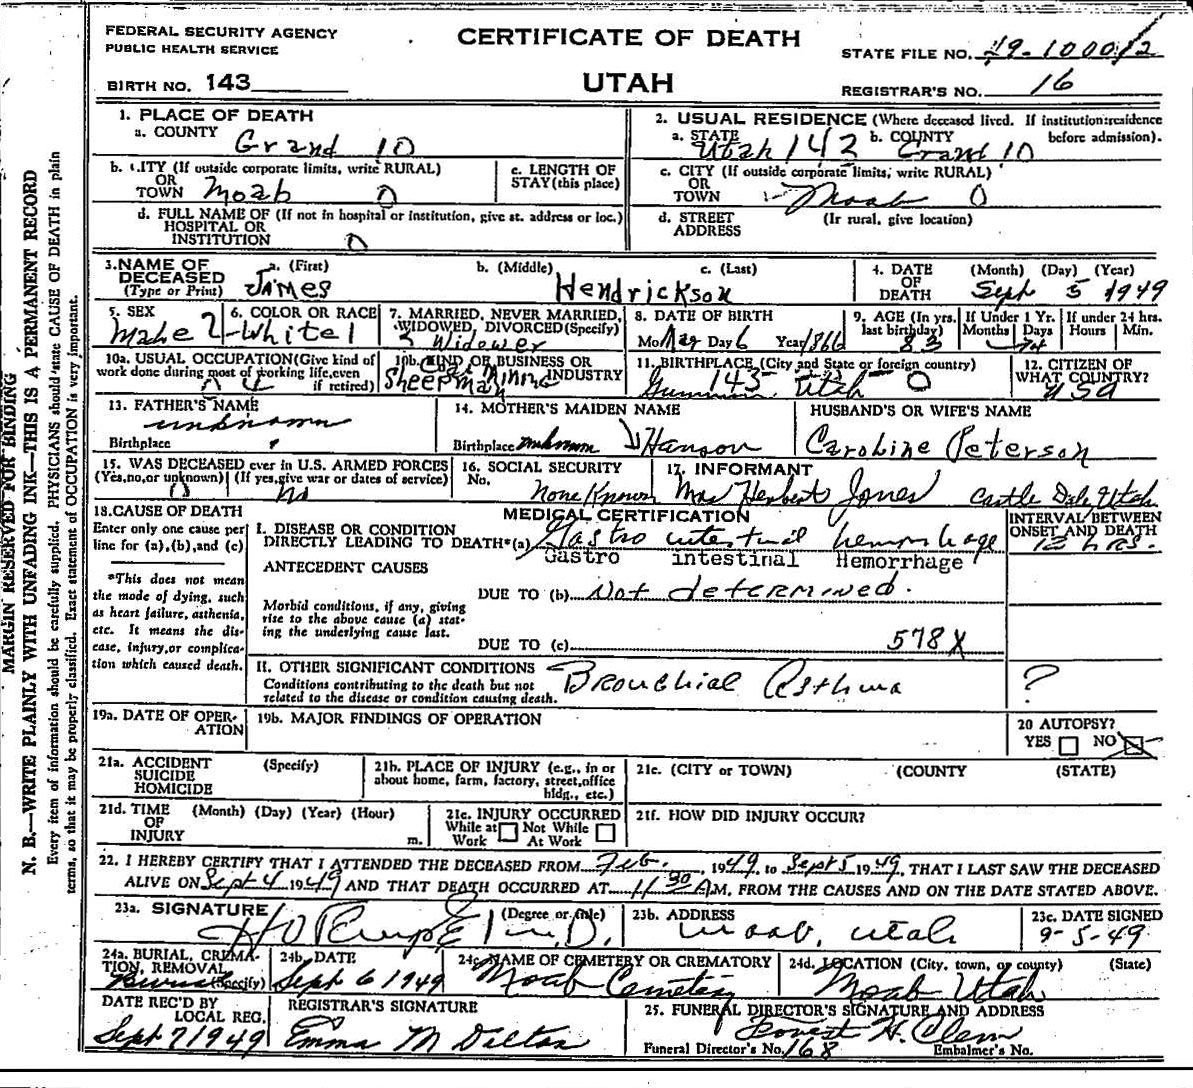 FEDERAL SECURITY AGENCY
PUBLIC HEALTH SERVICE
CERTIFICATE OF DEATH
STATE FILE NO. 49-100012
BIRTH NO. 143
UTAH
REGISTRAR'S NO. 16
MARGIN RESERVED FOR BINDING
N. B.—WRITE PLAINLY WITH UNFADING INK—THIS IS A PERMANENT RECORD
Every item of information should be carefully supplied. PHYSICIANS should state CAUSE OF DEATH in plain
terms, so that it may be properly classified. Exact statement of OCCUPATION is very important.
1. PLACE OF DEATH
a. COUNTY Grand 10
b. CITY (If outside corporate limits, write RURAL)
OR
TOWN Moab 0
c. LENGTH OF
STAY (this place)
d. FULL NAME OF (If not in hospital or institution, give st. address or loc.)
HOSPITAL OR
INSTITUTION 0
2. USUAL RESIDENCE (Where deceased lived. If institution: residence
before admission).
a. STATE Utah 142 b. COUNTY Grand 10
c. CITY (If outside corporate limits, write RURAL)
OR
TOWN Moab 0
d. STREET (If rural, give location)
ADDRESS
3. NAME OF DECEASED
(Type or Print)
a. (First) James
b. (Middle)
c. (Last) Hendrickson
4. DATE OF DEATH (Month) (Day) (Year)
Sept 5 1949
5. SEX
Male 2
6. COLOR OR RACE
White 1
7. MARRIED, NEVER MARRIED,
WIDOWED, DIVORCED (Specify)
3 Widower
8. DATE OF BIRTH
Mo May Day 6 Year 1866
9. AGE (In yrs. last birthday)
83
If Under 1 Yr.
Months Days
If under 24 hrs.
Hours Min.
10a. USUAL OCCUPATION (Give kind of
work done during most of working life, even
if retired)
10b. KIND OF BUSINESS OR
INDUSTRY
Sheepman
11. BIRTHPLACE (City and State or foreign country)
145 Utah 0
12. CITIZEN OF
WHAT COUNTRY?
USA
13. FATHER'S NAME
unknown
Birthplace
14. MOTHER'S MAIDEN NAME
Birthplace unknown Hanson
HUSBAND'S OR WIFE'S NAME
Caroline Peterson
15. WAS DECEASED ever in U.S. ARMED FORCES
(Yes, no, or unknown) (If yes, give war or dates of service)
0 No
16. SOCIAL SECURITY
No.
None Known
17. INFORMANT
Mrs Herbert Jones Castle Dale, Utah
18. CAUSE OF DEATH
Enter only one cause per
line for (a), (b), and (c)
*This does not mean
the mode of dying, such
as heart failure, asthenia,
etc. It means the dis-
ease, injury, or complica-
tion which caused death.
MEDICAL CERTIFICATION
INTERVAL BETWEEN
ONSET AND DEATH
I. DISEASE OR CONDITION
DIRECTLY LEADING TO DEATH*(a) Gastro intestinal hemorrhage 12 HRS.
Gastro intestinal Hemorrhage
ANTECEDENT CAUSES
DUE TO (b) Not determined.
Morbid conditions, if any, giving
rise to the above cause (a) stat-
ing the underlying cause last.
DUE TO (c) 578X
II. OTHER SIGNIFICANT CONDITIONS
Conditions contributing to the death but not
related to the disease or condition causing death.
Bronchial Asthma ?
19a. DATE OF OPER-
ATION
19b. MAJOR FINDINGS OF OPERATION
20 AUTOPSY?
YES NO
21a. ACCIDENT (Specify)
SUICIDE
HOMICIDE
21b. PLACE OF INJURY (e.g., in or
about home, farm, factory, street, office
bldg., etc.)
21c. (CITY or TOWN) (COUNTY) (STATE)
21d. TIME (Month) (Day) (Year) (Hour)
OF
INJURY m.
21e. INJURY OCCURRED
While at Not While
Work At Work
21f. HOW DID INJURY OCCUR?
22. I HEREBY CERTIFY THAT I ATTENDED THE DECEASED FROM Feb., 1949, to Sept 5 1949, THAT I LAST SAW THE DECEASED
ALIVE ON Sept 4 1949 AND THAT DEATH OCCURRED AT 11 30 A M, FROM THE CAUSES AND ON THE DATE STATED ABOVE.
23a. SIGNATURE (Degree or title)
M.D.
23b. ADDRESS
Moab, Utah
23c. DATE SIGNED
9-5-49
24a. BURIAL, CREMA-
TION, REMOVAL
(Specify)
Burial
24b. DATE
Sept 6 1949
24c. NAME OF CEMETERY OR CREMATORY
Moab Cemetery
24d. LOCATION (City, town, or county) (State)
Moab Utah
DATE REC'D BY
LOCAL REG.
Sept 7 1949
REGISTRAR'S SIGNATURE
Emma M Dalton
25. FUNERAL DIRECTOR'S SIGNATURE AND ADDRESS
Forest H. Clem
Funeral Director's No. 168 Embalmer's No.